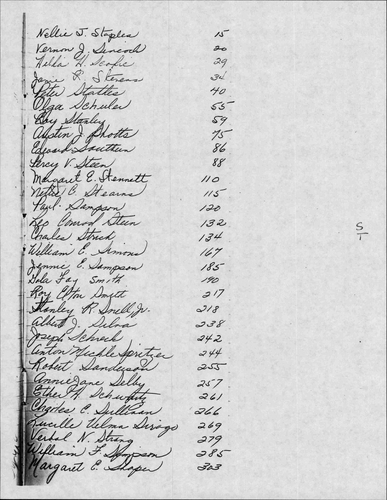 Nellie J. Staples 15
Vernon J. 20
Hilda H. 29
Janie R. Stevens 34
Peter Stattes 40
Olga Schuler 55
Ray Stanley 59
Austin J. Shotts 75
Edward 86
Percy V. Steen 88
Margaret E. Stennett 110
Nettie C. Stearns 115
Paul Sampson 120
Leo Conrad Stein 132
Charles 134
William E. Simons 167
Jennie E. Sampson 185
Lola Fay Smith 190
Roy Elton Smyth 217
Stanley R. Snell, Jr. 218
Albert J. Silva 238
Joseph Schreck 242
Anton Meckle Spritzer 244
Robert Sanderson 255
Annie Jane Selby 257
Ethel H. 261
Charles E. Sullivan 266
Lucille Velma 269
Verbal N. Strong 279
William F. Simpson 285
Margaret E. Shaper 303
S/1